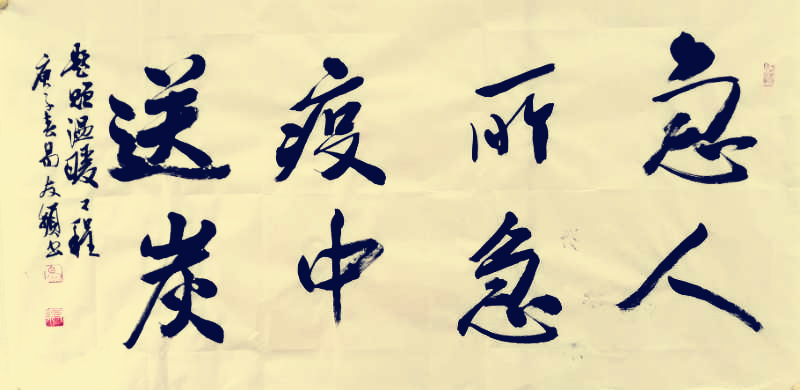 急人
所急
疫中
送炭
温暖工程
庚子春友书